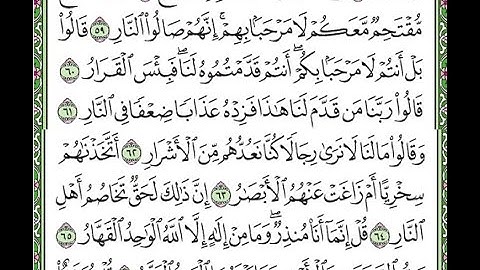 مُّقْتَحِمٌ مَّعَكُمْ لَا مَرْحَبًۢا بِهِمْ ۚ إِنَّهُمْ صَالُوا۟ ٱلنَّارِ ٥٩ قَالُوا۟
بَلْ أَنتُمْ لَا مَرْحَبًۢا بِكُمْ ۖ أَنتُمْ قَدَّمْتُمُوهُ لَنَا ۖ فَبِئْسَ ٱلْقَرَارُ ٦٠
قَالُوا۟ رَبَّنَا مَن قَدَّمَ لَنَا هَـٰذَا فَزِدْهُ عَذَابًا ضِعْفًا فِى ٱلنَّارِ ٦١
وَقَالُوا۟ مَا لَنَا لَا نَرَىٰ رِجَالًا كُنَّا نَعُدُّهُم مِّنَ ٱلْأَشْرَارِ ٦٢ أَتَّخَذْنَـٰهُمْ
سِخْرِيًّا أَمْ زَاغَتْ عَنْهُمُ ٱلْأَبْصَـٰرُ ٦٣ إِنَّ ذَٰلِكَ لَحَقٌّ تَخَاصُمُ أَهْلِ
ٱلنَّارِ ٦٤ قُلْ إِنَّمَآ أَنَا۠ مُنذِرٌ ۖ وَمَا مِنْ إِلَـٰهٍ إِلَّا ٱللَّهُ ٱلْوَٰحِدُ ٱلْقَهَّارُ ٦٥